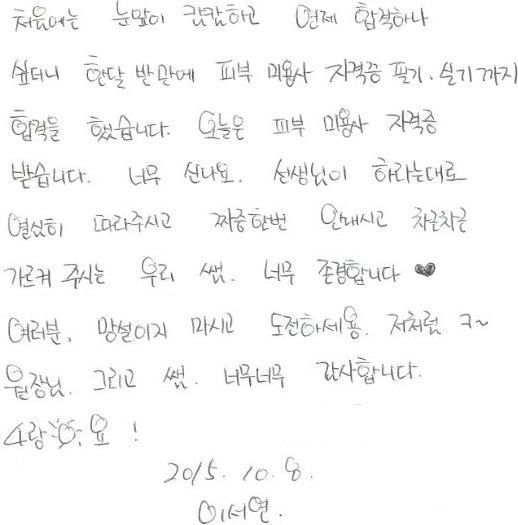 처음에는 눈앞이 캄캄하고 언제 합격하나
싶더니 한달 반만에 피부 미용사 자격증 필기. 실기까지
합격을 했습니다. 오늘은 피부 미용사 자격증
받습니다. 너무 신나요. 선생님이 하라는대로
열심히 따라주시고 짜증한번 안내시고 차근차근
가르켜 주시는 우리 쌤. 너무 존경합니다 ♥
여러분. 망설이지 마시고 도전하세용. 저처럼 ㅋ~
원장님. 그리고 쌤. 너무너무 감사합니다.
4랑해요!
2015. 10. 8.
이서연.